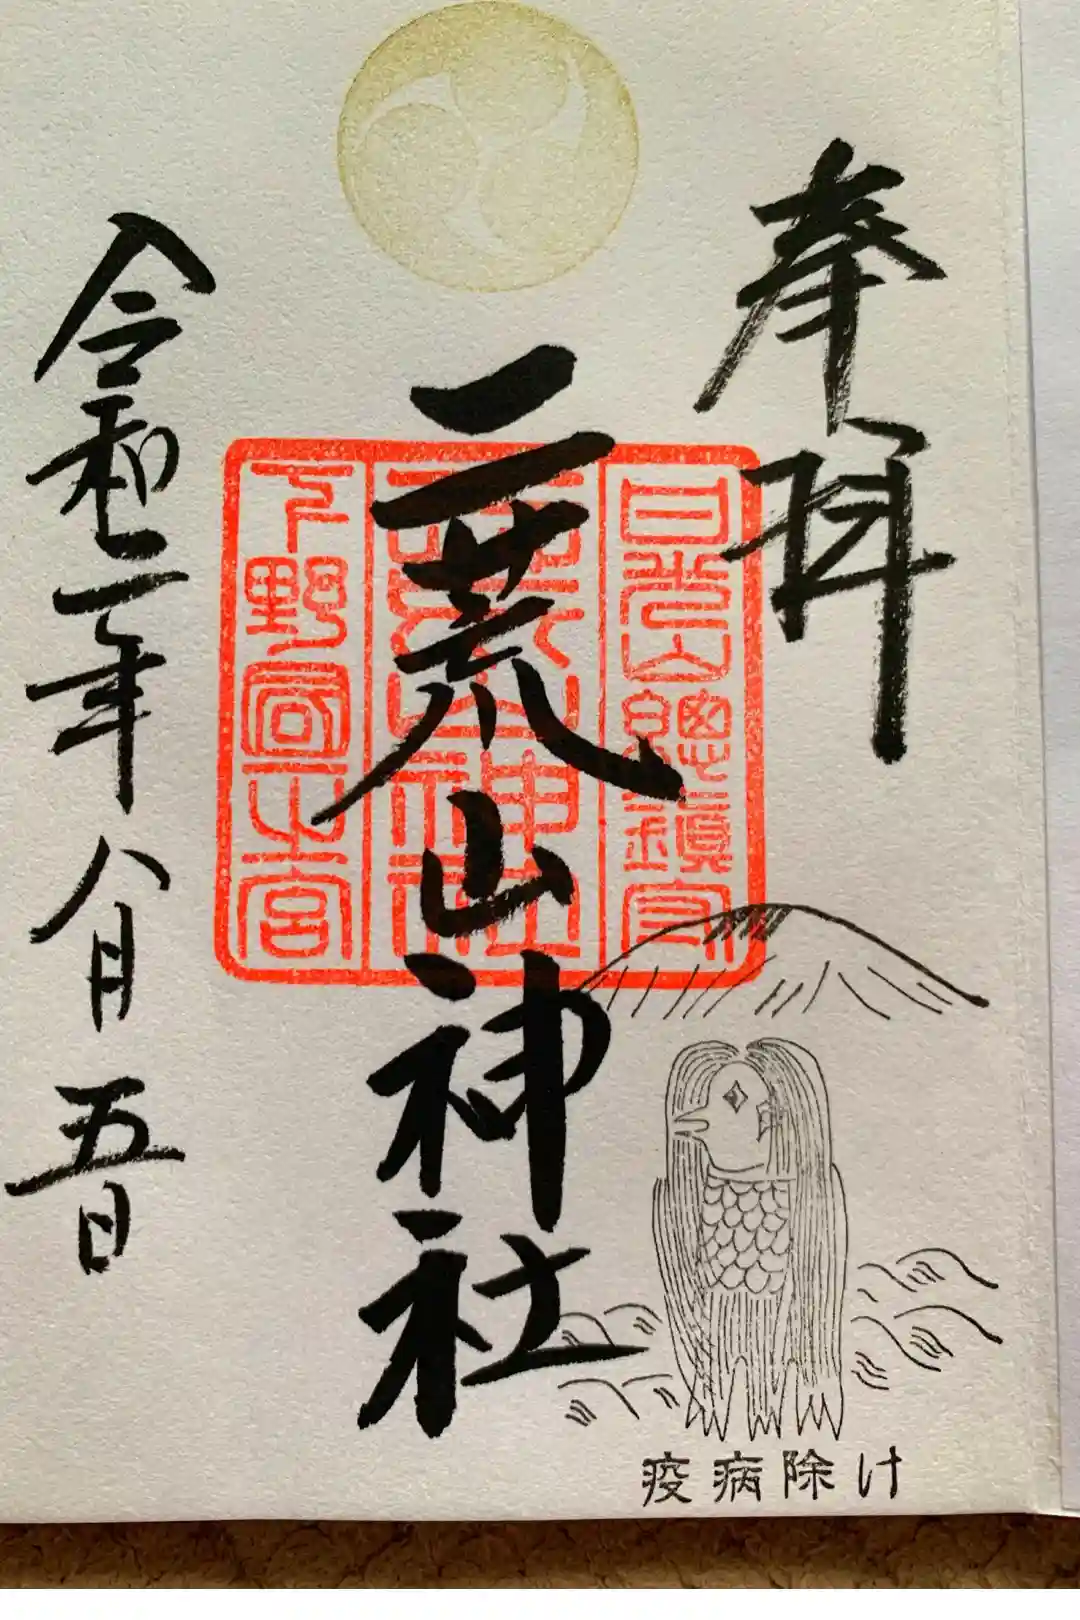 奉拝
日光山總鎮守
二荒山神社
下野國一之宮
令和二年八月五日
疫病除け